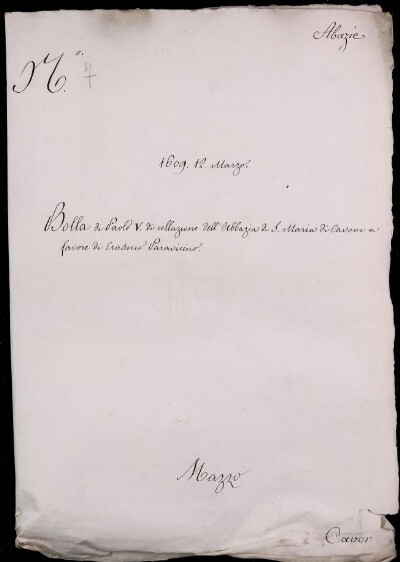 Abazie
N.º 7
1609. 12. Marzo.
Bolla di Paolo V. di collazione dell'Abbazia di S. Maria di Cavour a
favore di Erasmo Paravicino.
Mazzo
Cavor